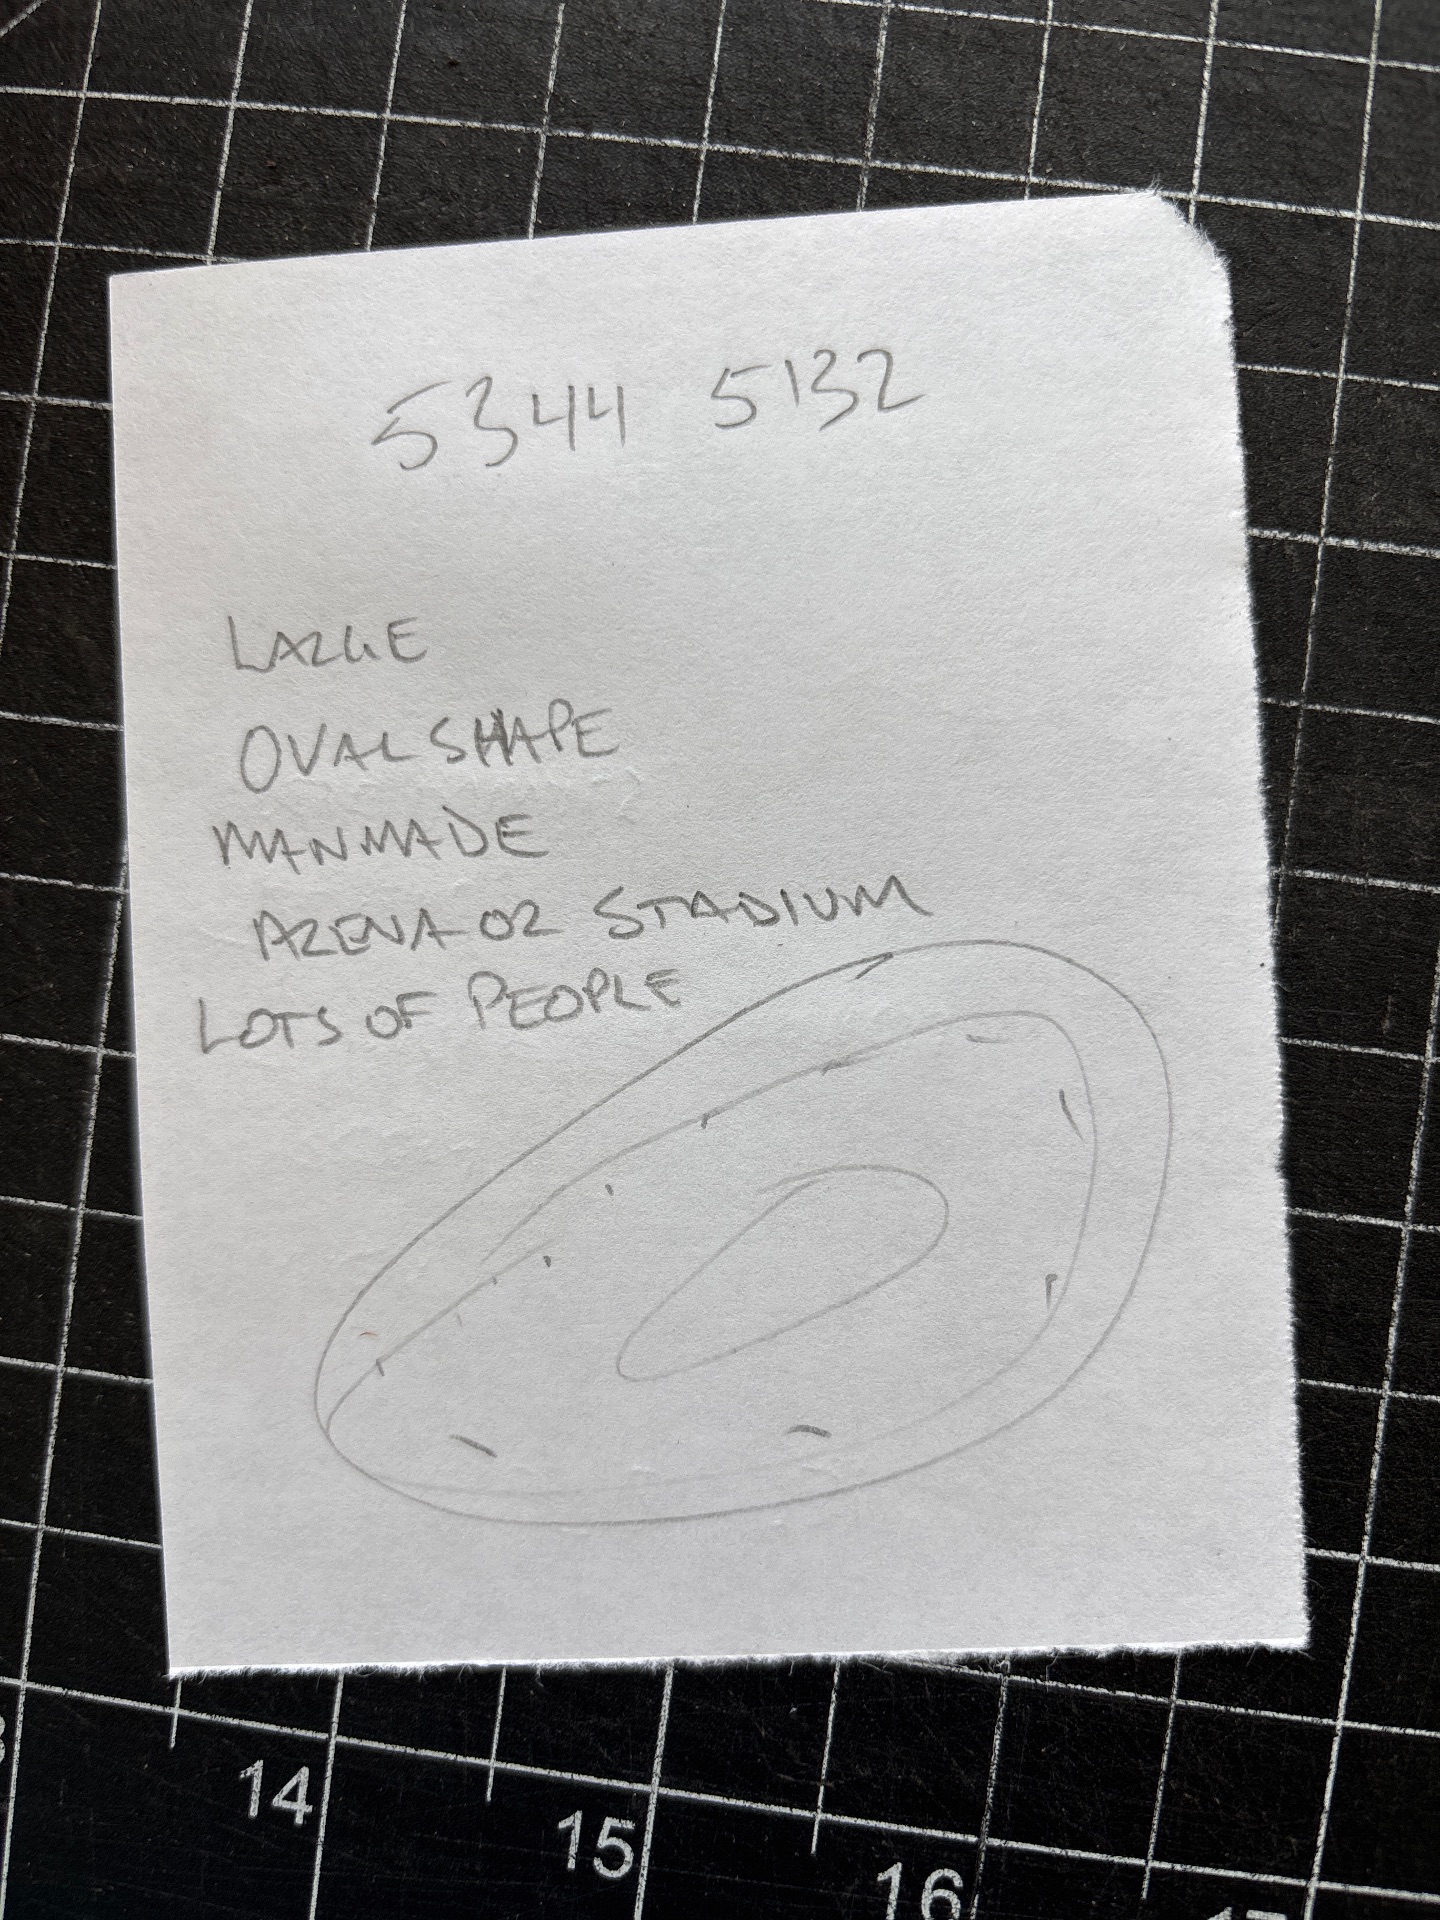 5344 5132
LARGE
OVAL SHAPE
MANMADE
ARENA OR STADIUM
LOTS OF PEOPLE
14
15
16